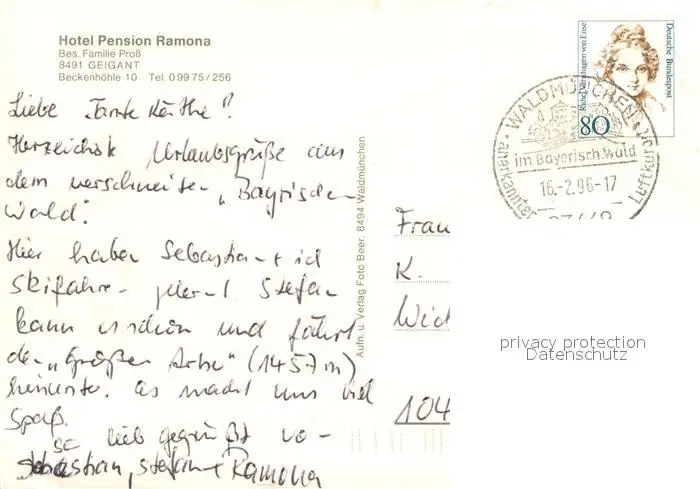 Hotel Pension Ramona
Bes. Familie Proß
8491 GEIGANT
Beckenhöhle 10 Tel. 0 99 75 / 256
Liebe „Tante Käthe“!
Herzlichste Urlaubsgrüße aus
dem verschneiten „Bayrischen
Wald“.
Hier haben Sebastian + ich
Skifahren gelernt. Stefan
kann es schon und fährt
den „Großen Arber“ (1457 m)
hinunter. Es macht uns viel
Spaß.
So lieb gegrüßt von
Sebastian, Stefan + Ramona
Aufn. u. Verlag Foto Beer, 8494 Waldmünchen
Deutsche Bundespost
Rahel Varnhagen von Ense
80
WALDMÜNCHEN
im Bayerisch. Wald
16.-2.96-17
anerkannter Luftkurort
Frau
K.
104
privacy protection
Datenschutz